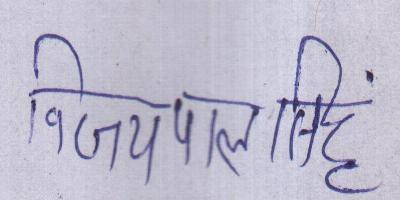 विजयपाल सिहं